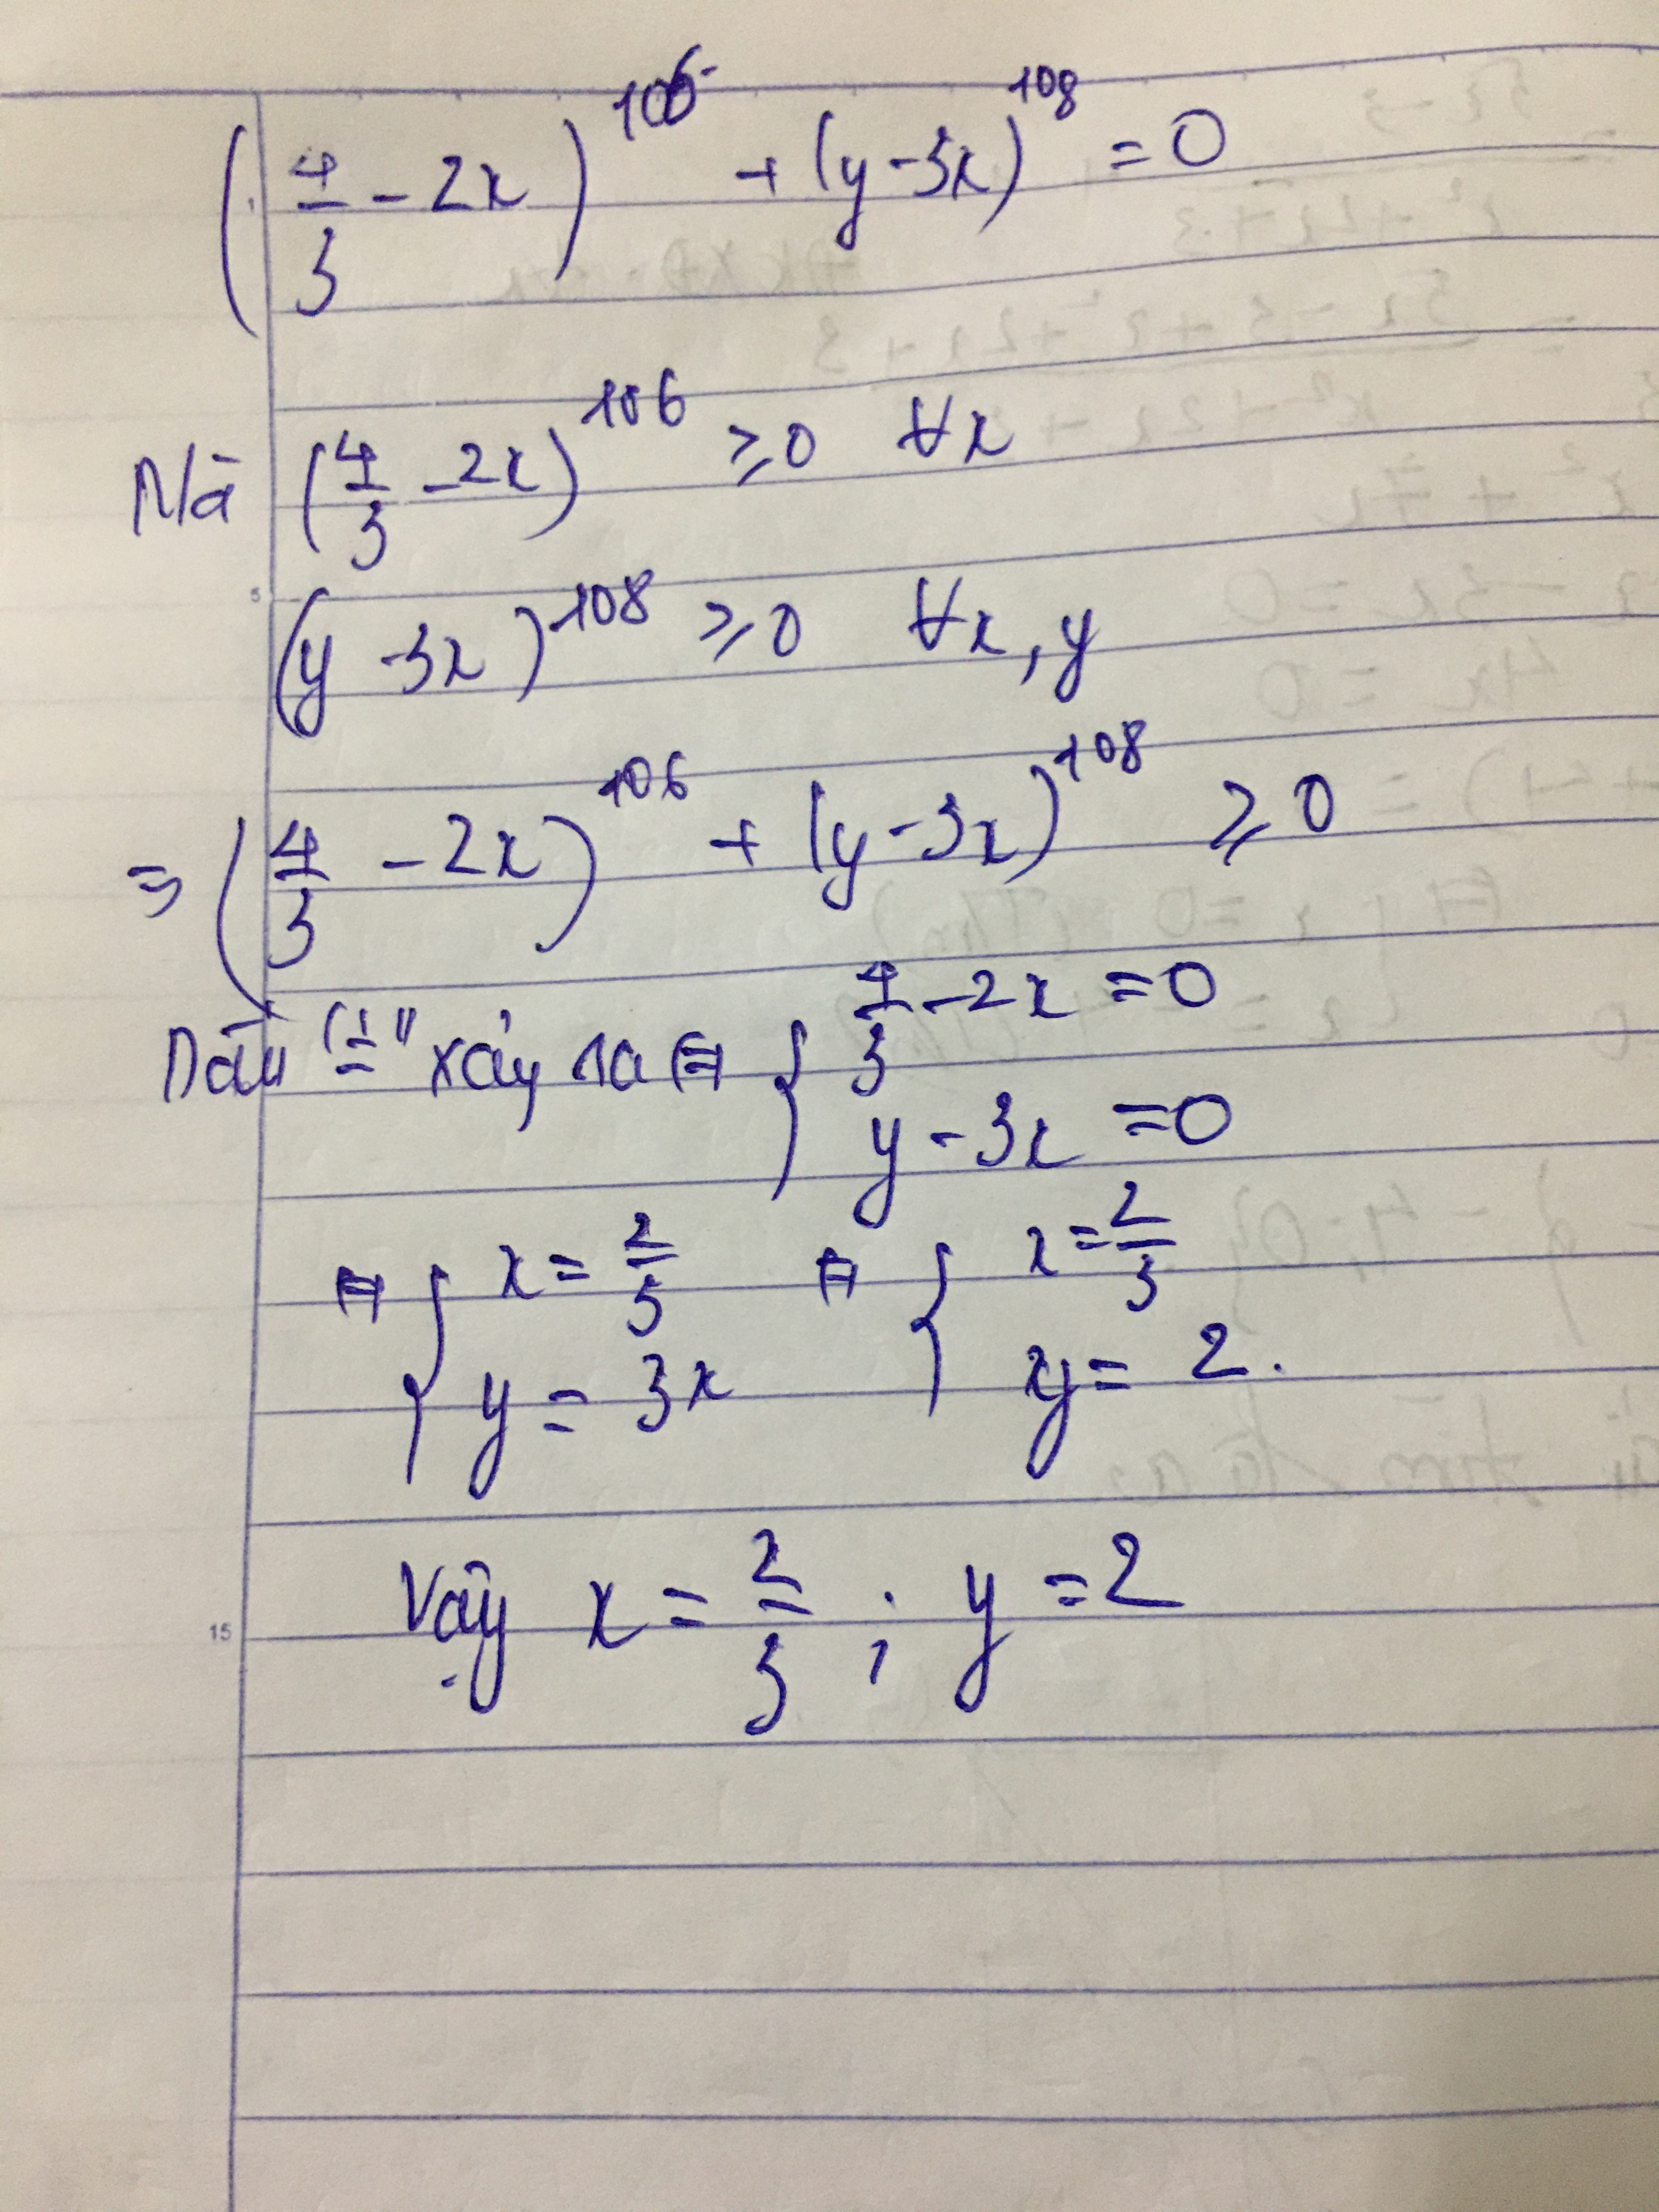 (4/3 - 2x)^106 + (y - 3x)^108 = 0
Mà (4/3 - 2x)^106 ≥ 0 ∀x
5
(y - 3x)^108 ≥ 0 ∀x, y
⇒ (4/3 - 2x)^106 + (y - 3x)^108 ≥ 0
Dấu "=" xảy ra ⇔ { 4/3 - 2x = 0
y - 3x = 0
⇔ { x = 2/3 ⇔ { x = 2/3
y = 3x y = 2.
15
Vậy x = 2/3 ; y = 2